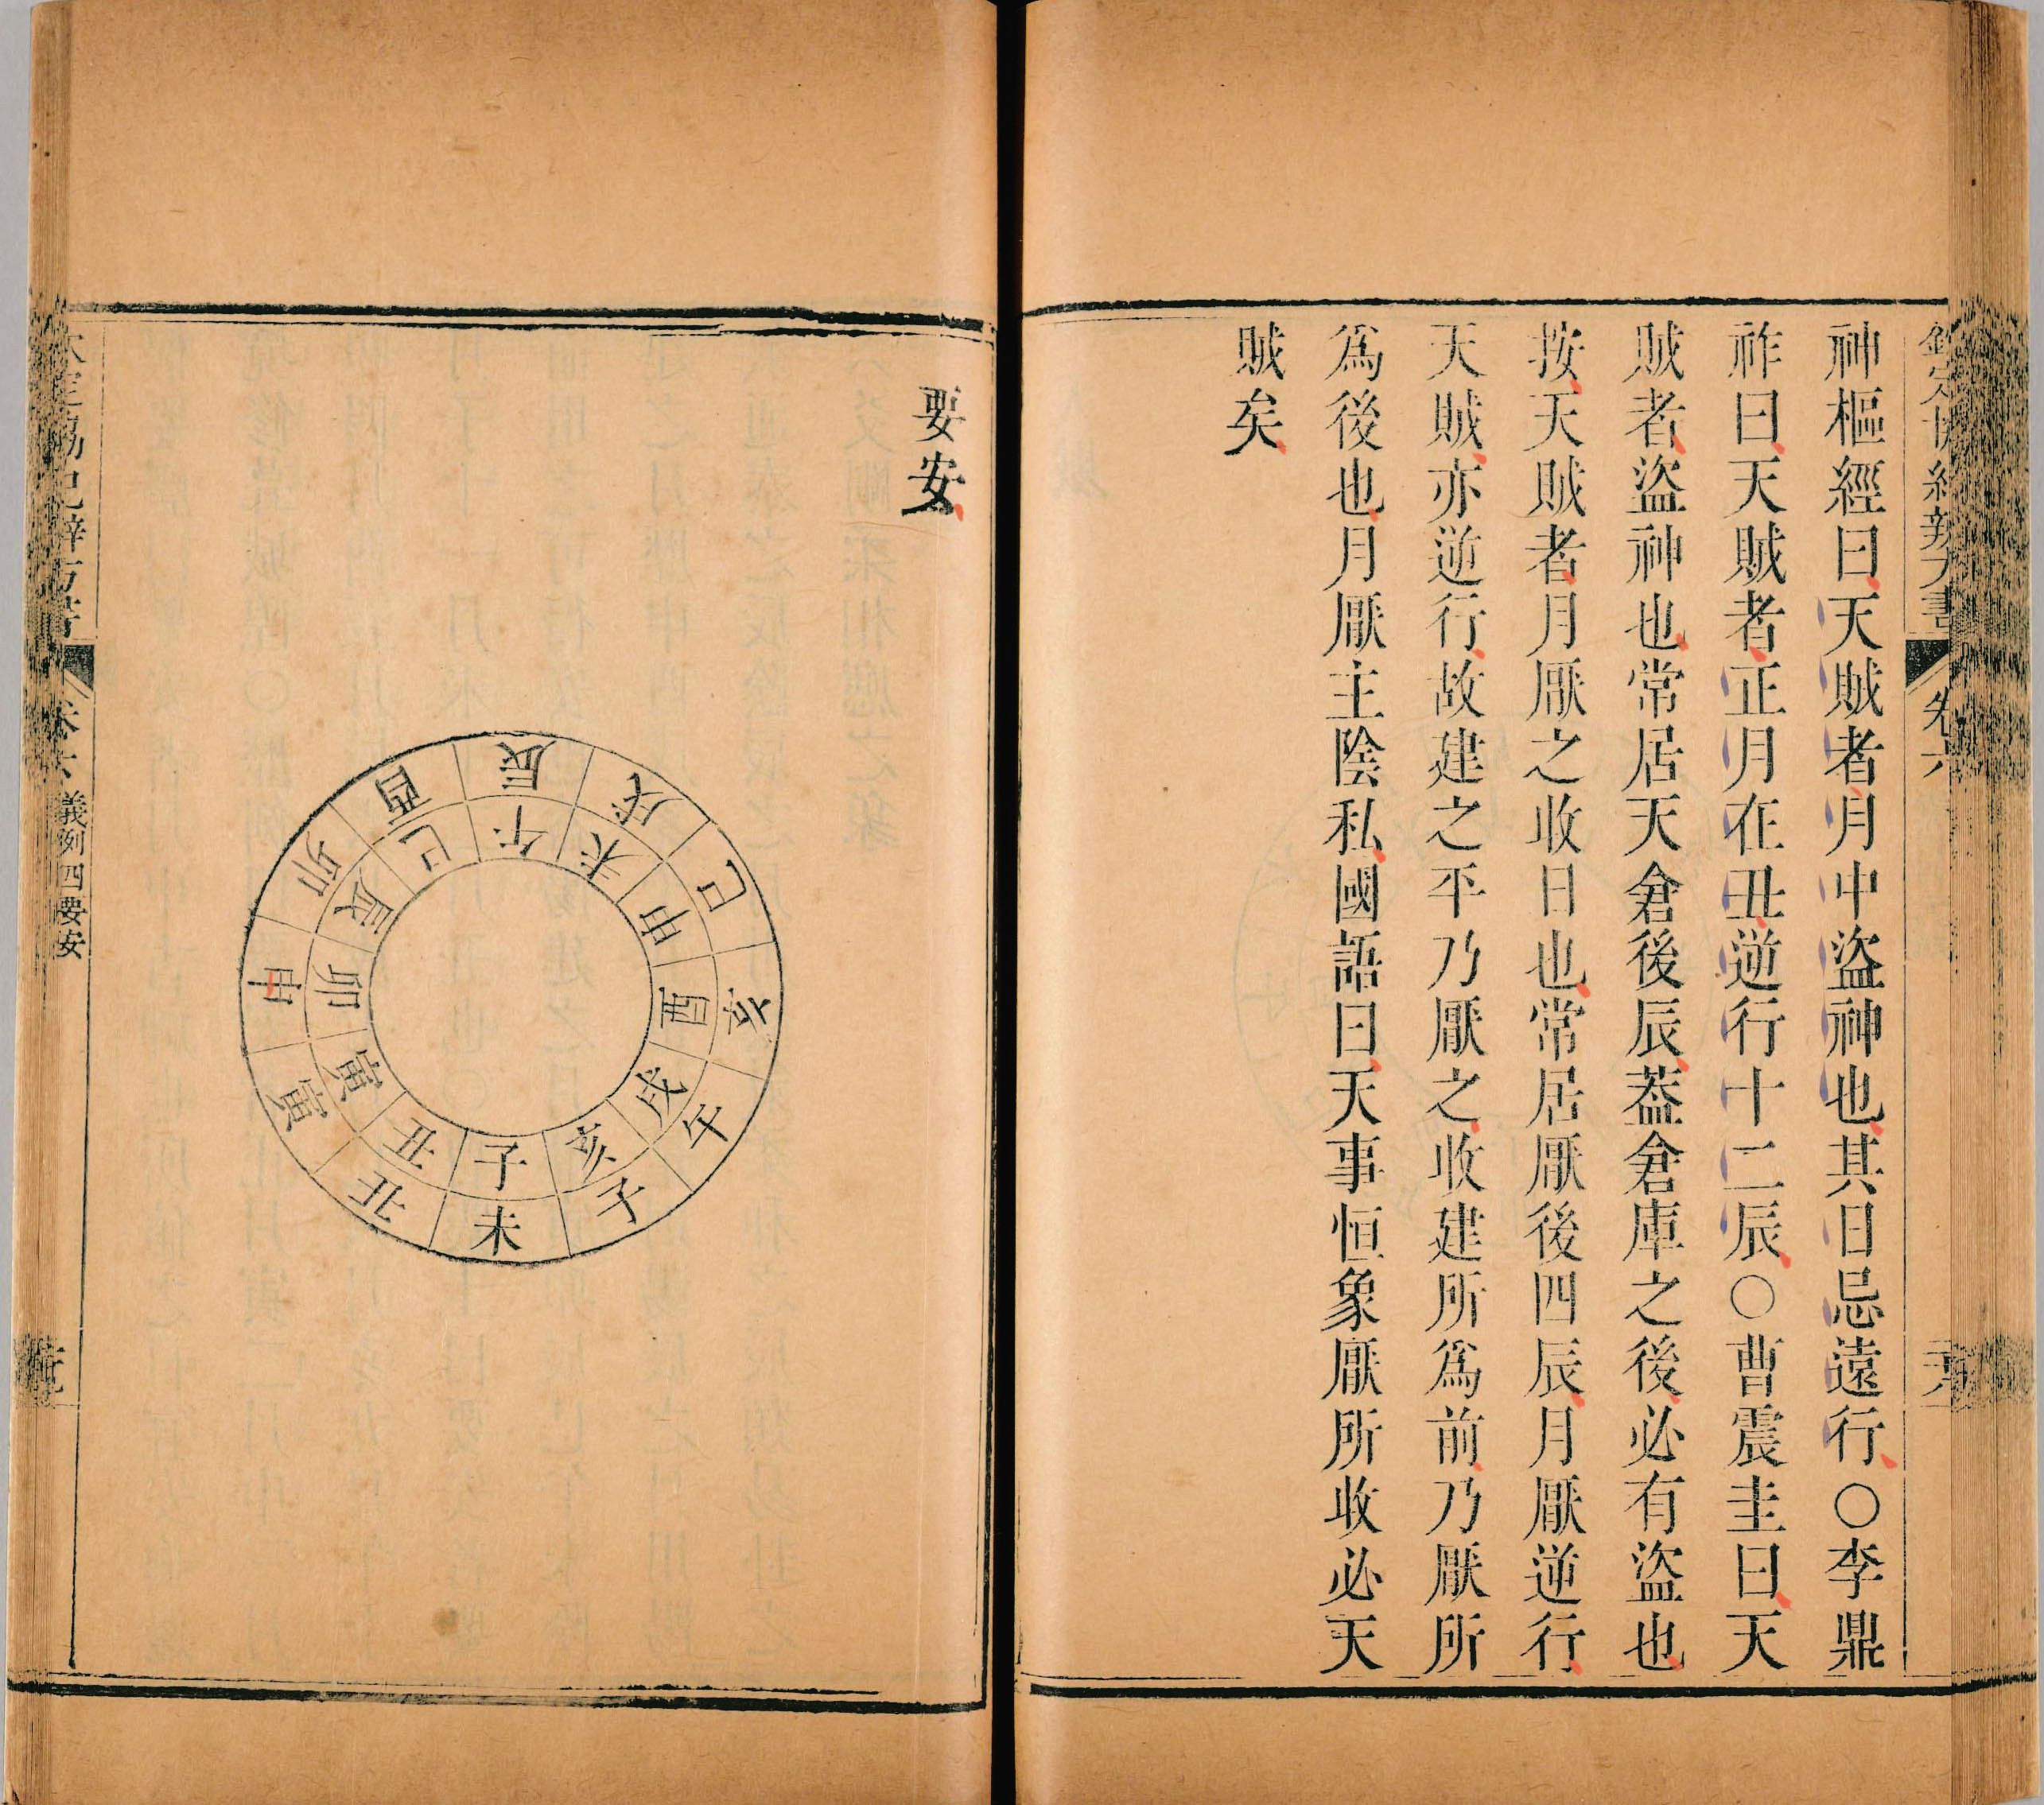 欽定協紀辨方書
卷六
神樞經曰天賊者月中盜神也其日忌遠行○李鼎
祚曰天賊者正月在丑逆行十二辰○曹震圭曰天
賊者盜神也常居天倉後辰葢倉庫之後必有盜也
按天賊者月厭之收日也常居厭後四辰月厭逆行
天賊亦逆行故建之平乃厭之收建所爲前乃厭所
爲後也月厭主陰私國語曰天事恒象厭所收必天
賊矣
要安
子
丑
寅
卯
辰
巳
午
未
申
酉
戌
亥
未
丑
寅
申
卯
酉
辰
戌
巳
亥
午
子
欽定協紀辨方書
卷六
義例四要安